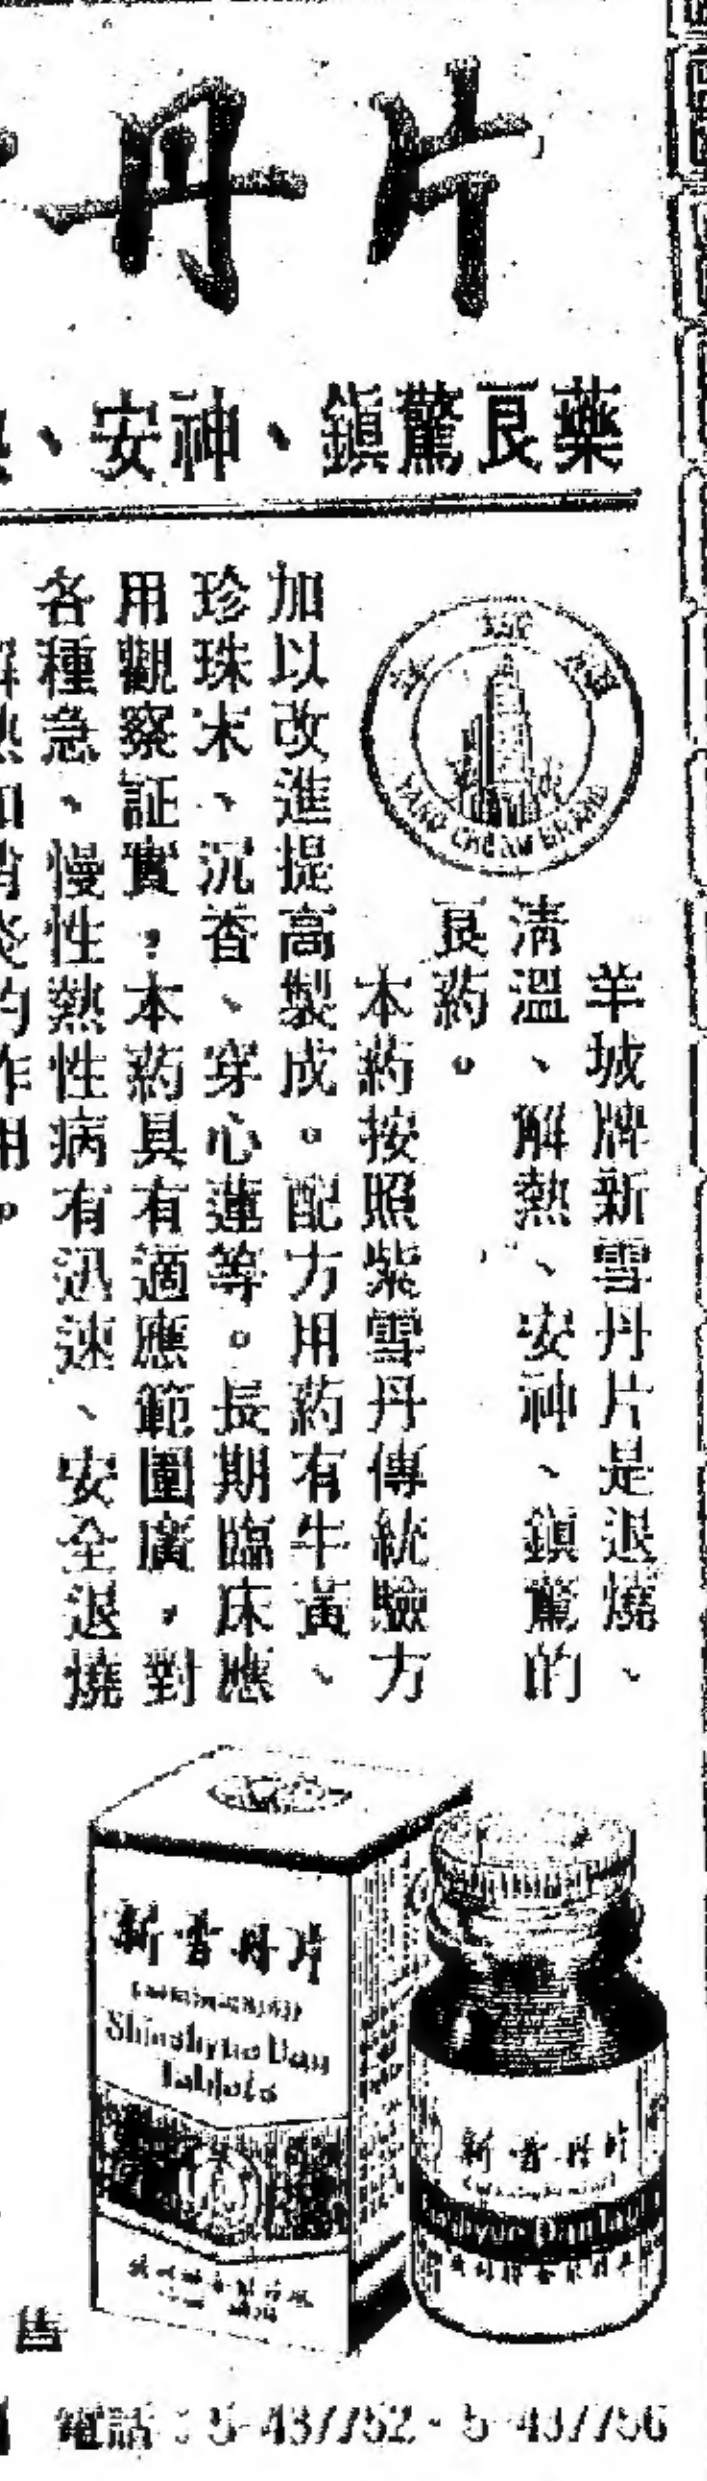 丹片
、安神、鎮驚良藥
羊城牌
YANG CHENG BRAND
羊城牌新雪丹片是退燒、
清溫、解熱、安神、鎮驚的
良葯。
本葯按照紫雪丹傳統驗方
加以改進提高製成。配方用葯有牛黃、
珍珠末、沉香、穿心蓮等。長期臨床應
用觀察証實,本葯具有適應範圍廣,對
各種急、慢性熱性病有迅速、安全退燒
解熱和消炎的作用。
新雪丹片
Shinshyue Dan
Tablets
新雪丹片
電話:5-437752·5-437756